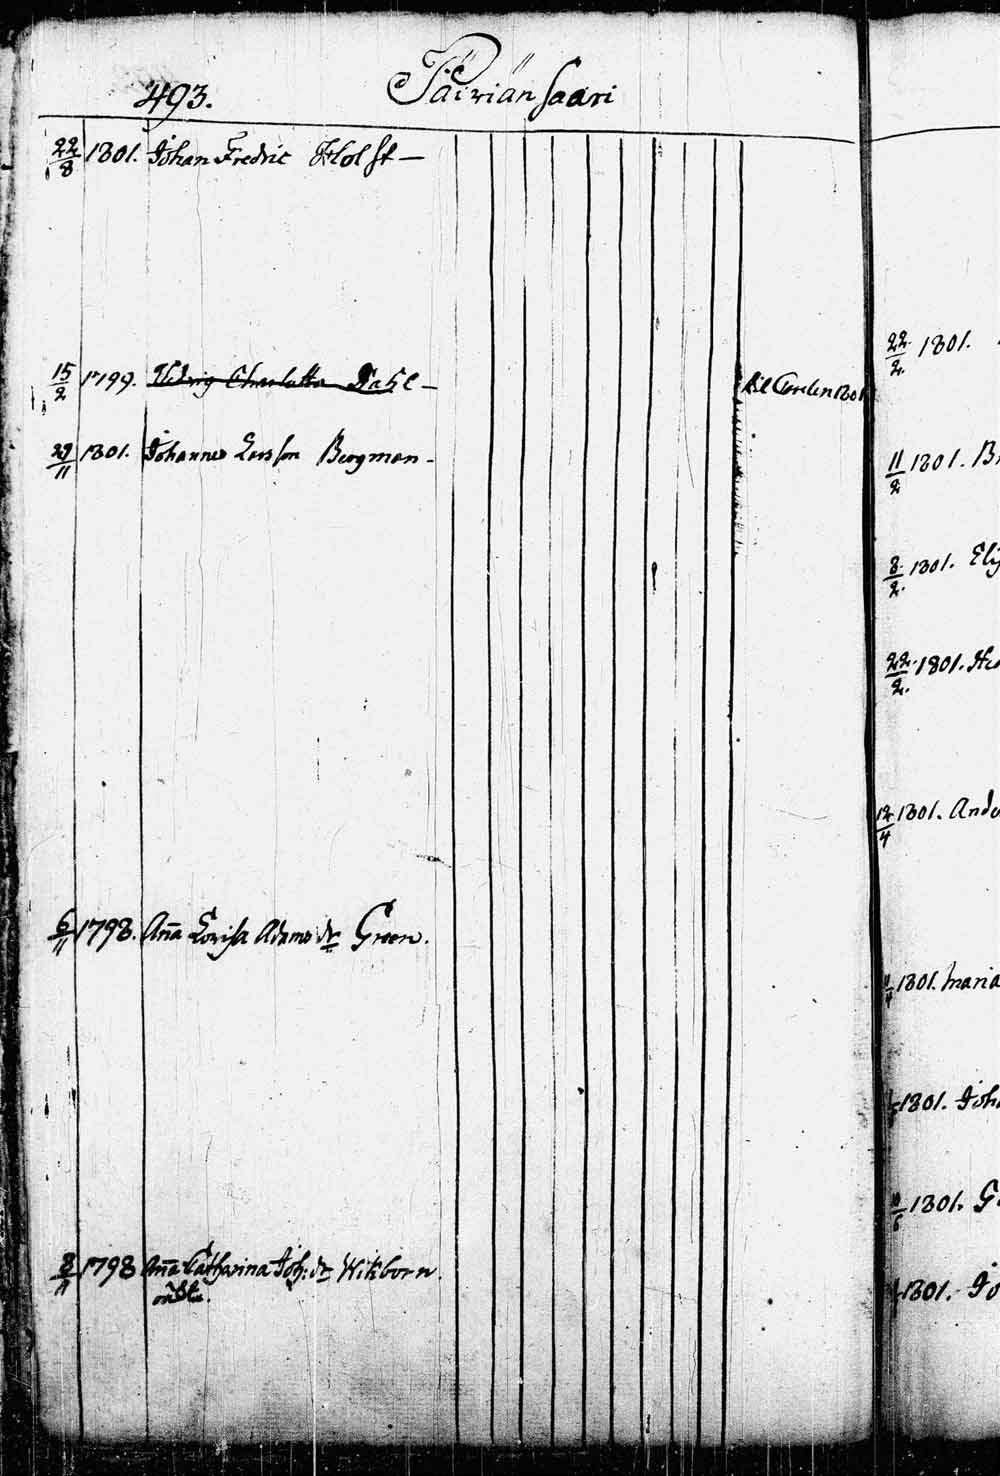 493.
Päiviän saari
22/8 1801. Johan Fredric Holst —
15/2 1799. Hedvig Charlotta Dahl —
29/11 1801. Johannes Larsson Bergman -
6/11 1798. Aña Lovisa Adams dr Green.
8/11 1798 Aña Catharina Joh: dr Wikborn.
22/2. 1801.
11/2 1801. B
8/2. 1801. Elis
22/2. 1801. Hed
12/4 1801. Ande
1801. Maria
1801. Joha
1801. G
1801. Jo